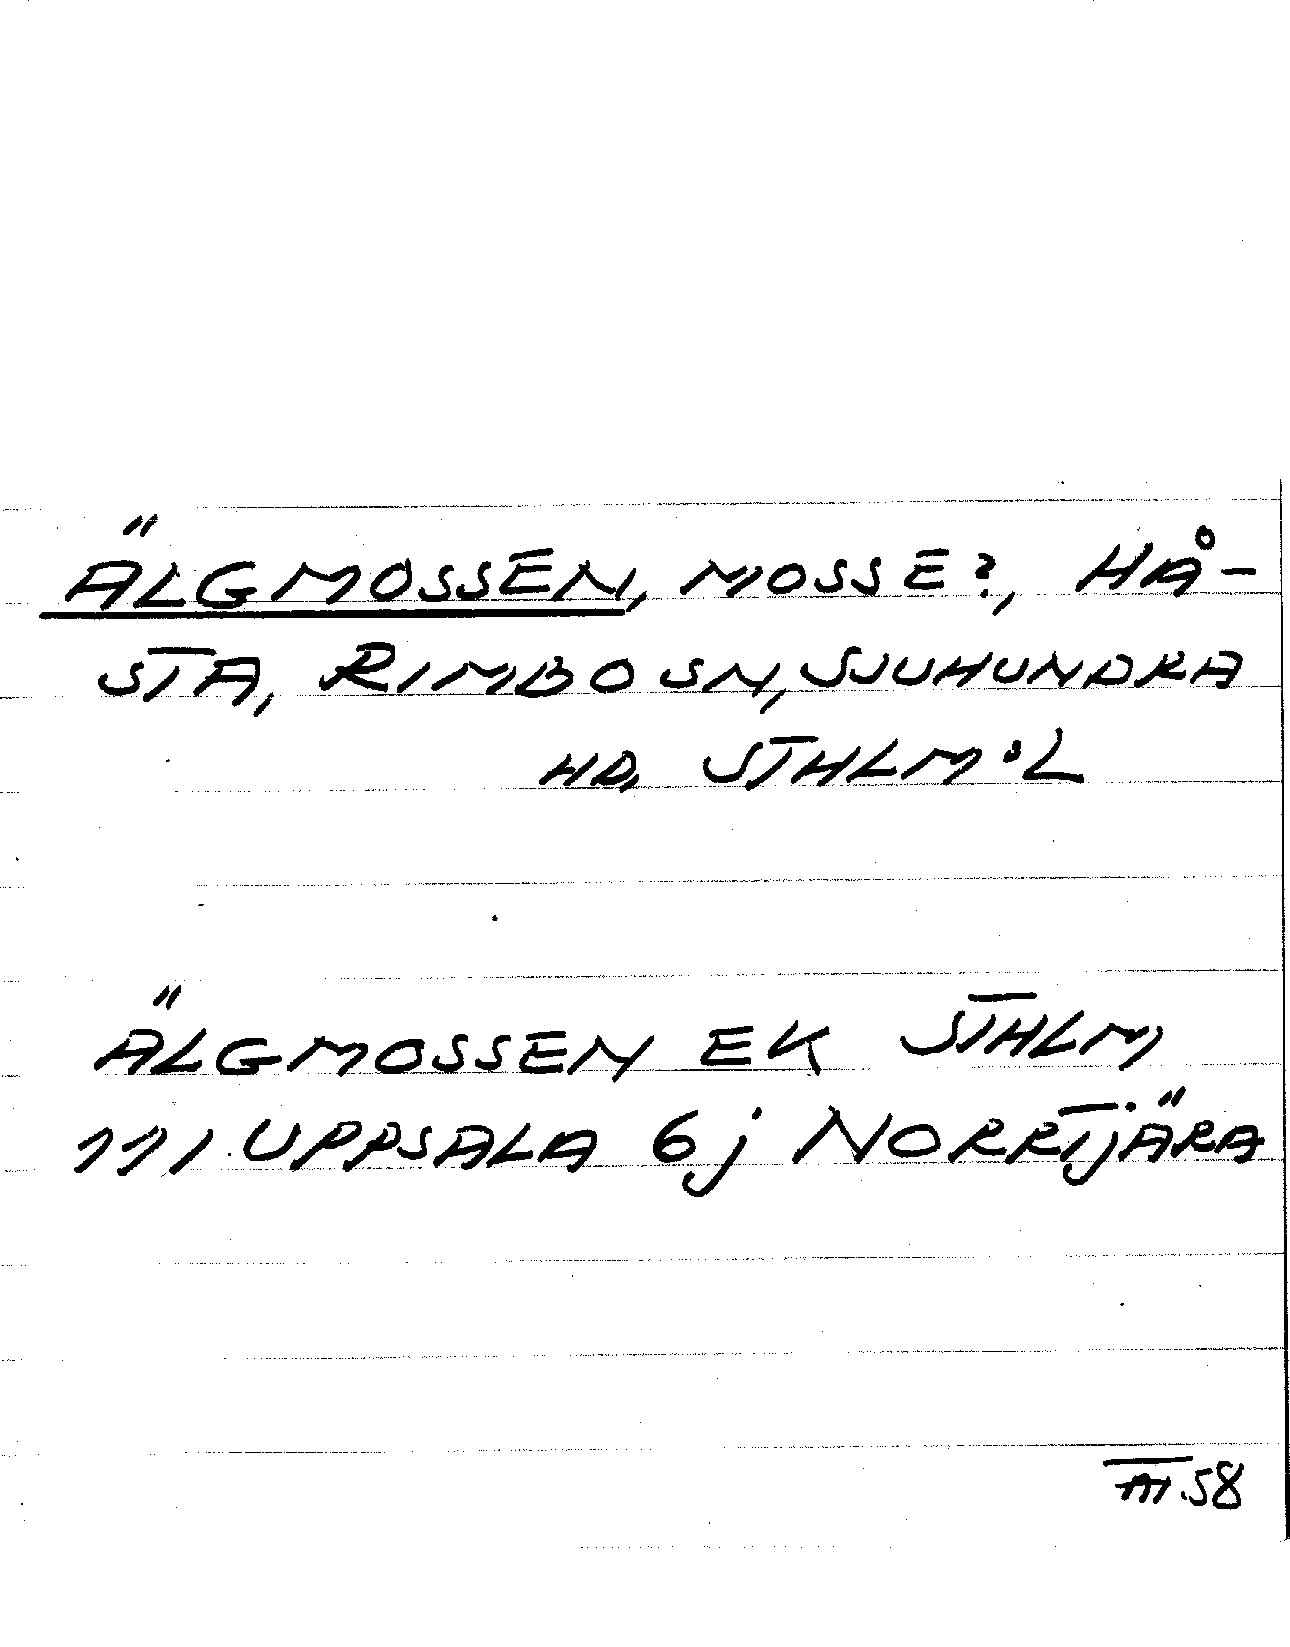 ÄLGMOSSEN, MOSSE?, HÅ-
STA, RIMBO SN, SJUHUNDRA
HD, STHLM:L
ÄLGMOSSEN EK STHLM
111 UPPSALA 6j NORRTJÄRA
.58